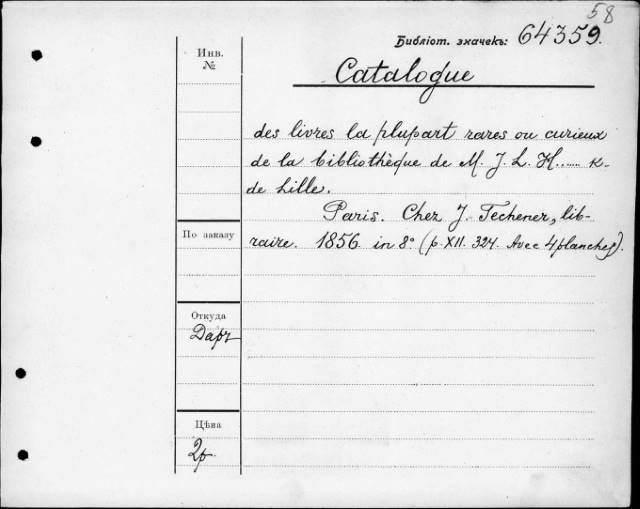 58
Библіот. значекъ: 64359.
Инв.
№
Catalogue
des livres la plupart rares ou curieux
de la bibliothèque de M. J. L. H...... K.
de Lille.
Paris. Chez J. Techener, lib-
raire. 1856. in 8° (p. XII. 324. Avec 4 planches).
По заказу
Откуда
Даръ
Цѣна
2р